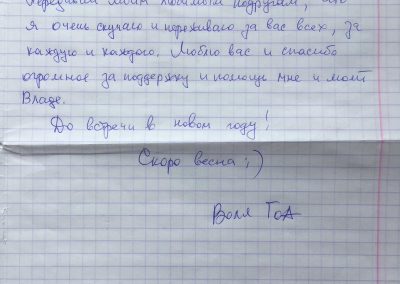 Передавай моим любимым подругам, что
я очень скучаю и переживаю за вас всех, за
каждую и каждого. Люблю вас и спасибо
огромное за поддержку и помощь мне и моей
Владе.
До встречи в новом году!
Скоро весна ;)
Воля ГоА